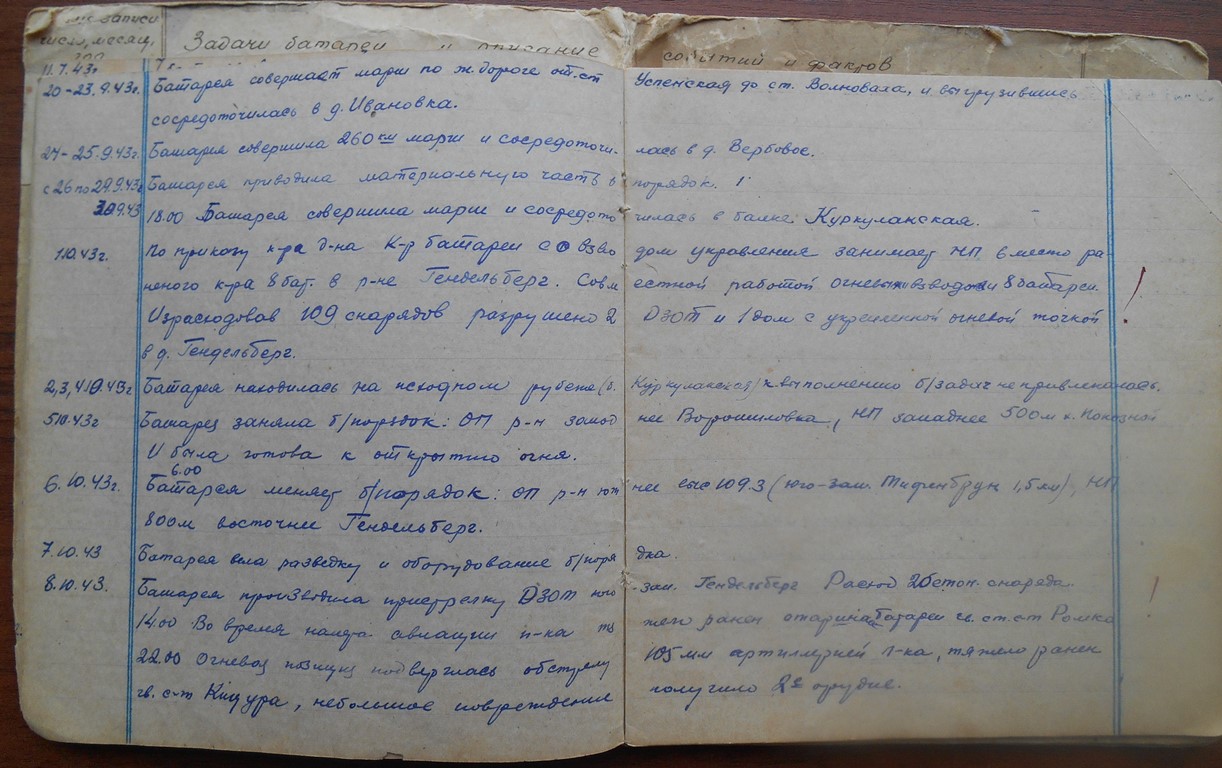 записи
число, месяц, Задачи батареи и описание событий и фактов
11.7.43г
20-23.9.43г. Батарея совершает марш по ж.дороге от.ст Успенская до ст. Волноваха, и выгрузившись
сосредоточилась в д. Ивановка.
24-25.9.43г. Батарея совершила 260 км марш и сосредоточи- лась в д. Вербовое.
с 26 по 29.9.43г Батарея приводила материальную часть в порядок.
30.9.43 18.00 Батарея совершила марш и сосредото чилась в балке Куркулакская.
1.10.43г. По приказу к-ра д-на К-р батареи со взво дом управления занимает НП вместо ра-
неного к-ра 8 бат. в р-не Гендельберг. Совм естной работой огневыми взводами 8 батареи
Израсходовав 109 снарядов разрушено 2 ДЗОТ и 1 дом с укрепленной огневой точкой
в д. Гендельберг.
2,3,4.10.43г Батарея находилась на исходном рубеже (б. Куркулакская) к выполнению б/задач не привлекалась.
5.10.43г Батарея заняла б/порядок: ОП р-н запад нее Ворошиловка, НП западнее 500м х. Показной
И была готова к открытию огня.
6.00
6.10.43г. Батарея меняет б/порядок: ОП р-н юж нее выс 109.3 (юго-зап. Тифенбрун 1,5 км), НП
800м восточнее Гендельберг.
7.10.43 Батарея вела разведку и оборудование б/поря дка.
8.10.43. Батарея производила пристрелку ДЗОТ юго зап. Гендельберг Расход 2 бетон. снаряда.
14.00 Во время налета авиации п-ка тя жело ранен старшина батареи гв. ст. с-т Ромко
22.00 Огневая позиция подверглась обстрелу 105 мм артиллерией п-ка, тяжело ранен
гв. с-т Кицура, небольшое повреждение получило 2е орудие.